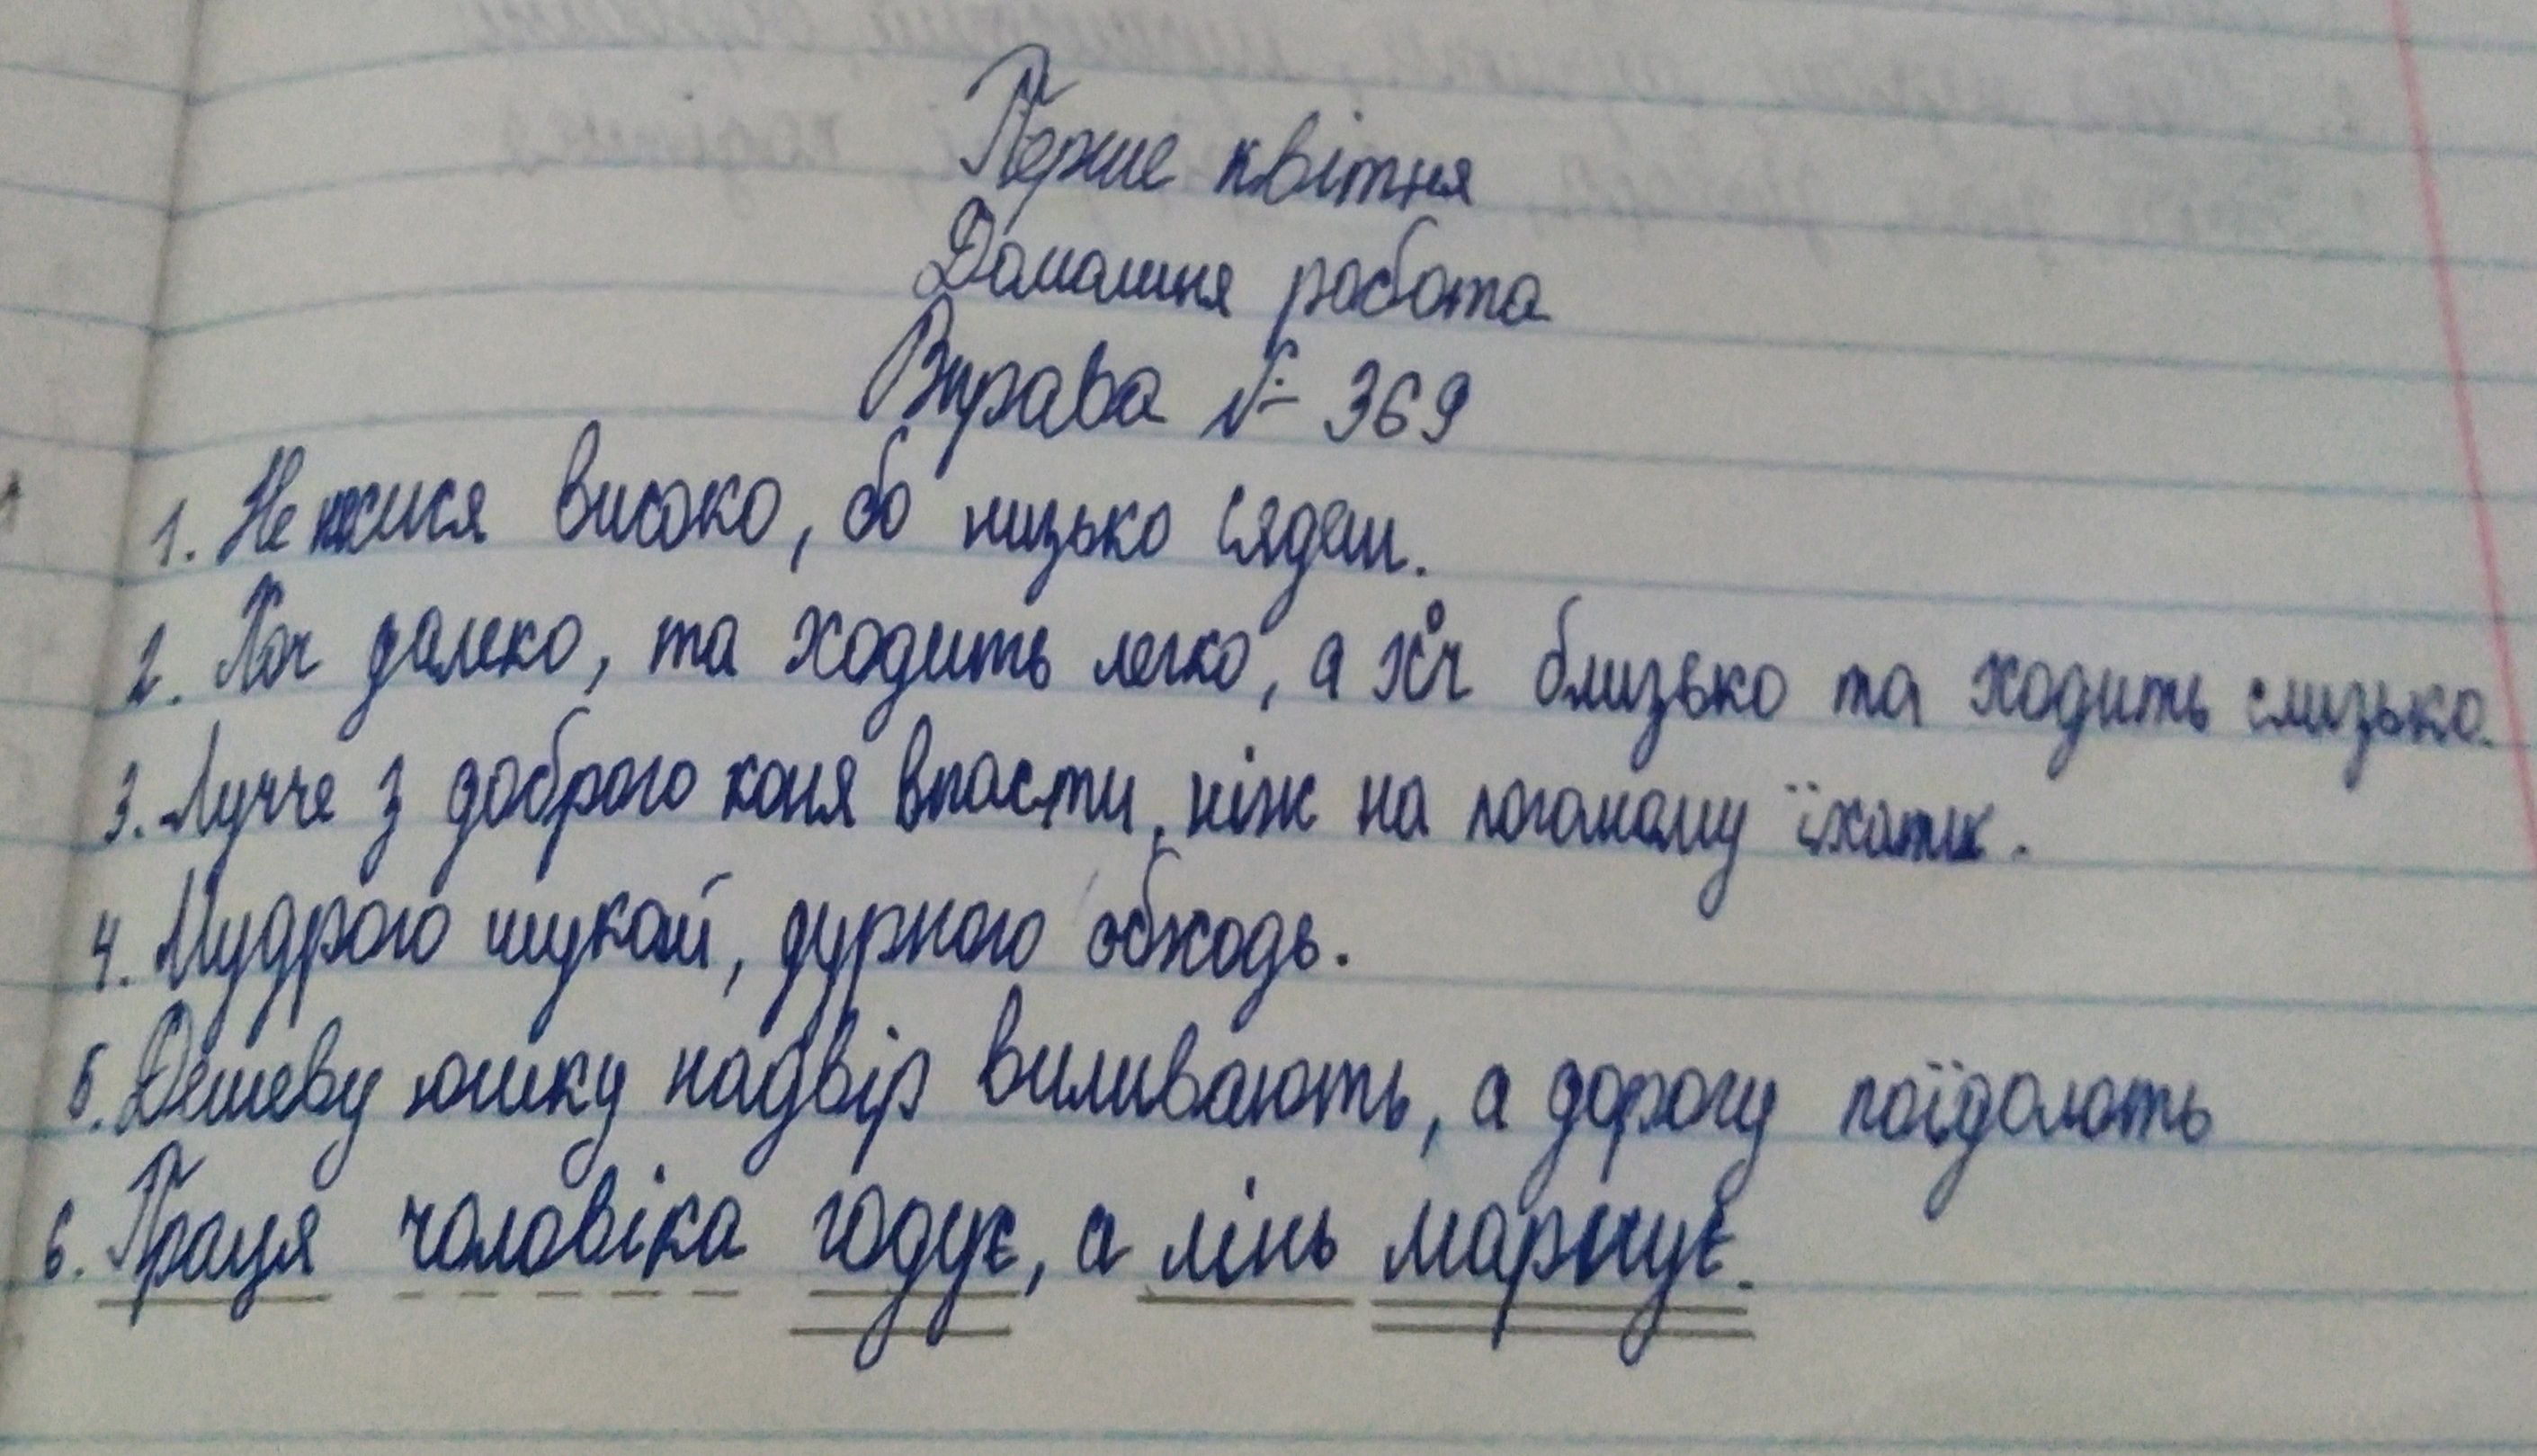 Перше квітня
Домашня робота
Вправа № 369
1. Не високо, бо низько сядеш.
2. Хоч далеко, та ходить легко, а хоч близько та ходить слизько.
3. Лучче з доброго коня впасти, ніж на поганому їхати.
4. Мудрого шукай, дурного обходь.
5. Дешеву юшку надвір виливають, а дорогу поїдають
6. Праця чоловіка годує, а лінь марнує.